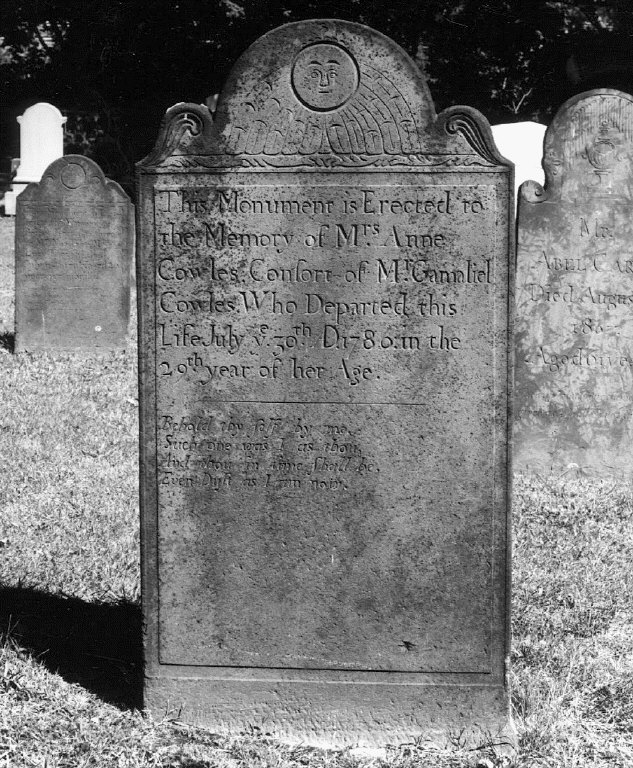 This Monument is Erected to
the Memory of Mrs Anne
Cowles, Consort of Mr Gamaliel
Cowles, Who Departed this
Life July ye. 30th. D1786: in the
29th year of her Age.
Behold thy self by me,
Such one was I as thou,
And thou in time shall be,
Even Dust as I am now.
Mr.
ABEL CAR
Died Augus
180
Aged